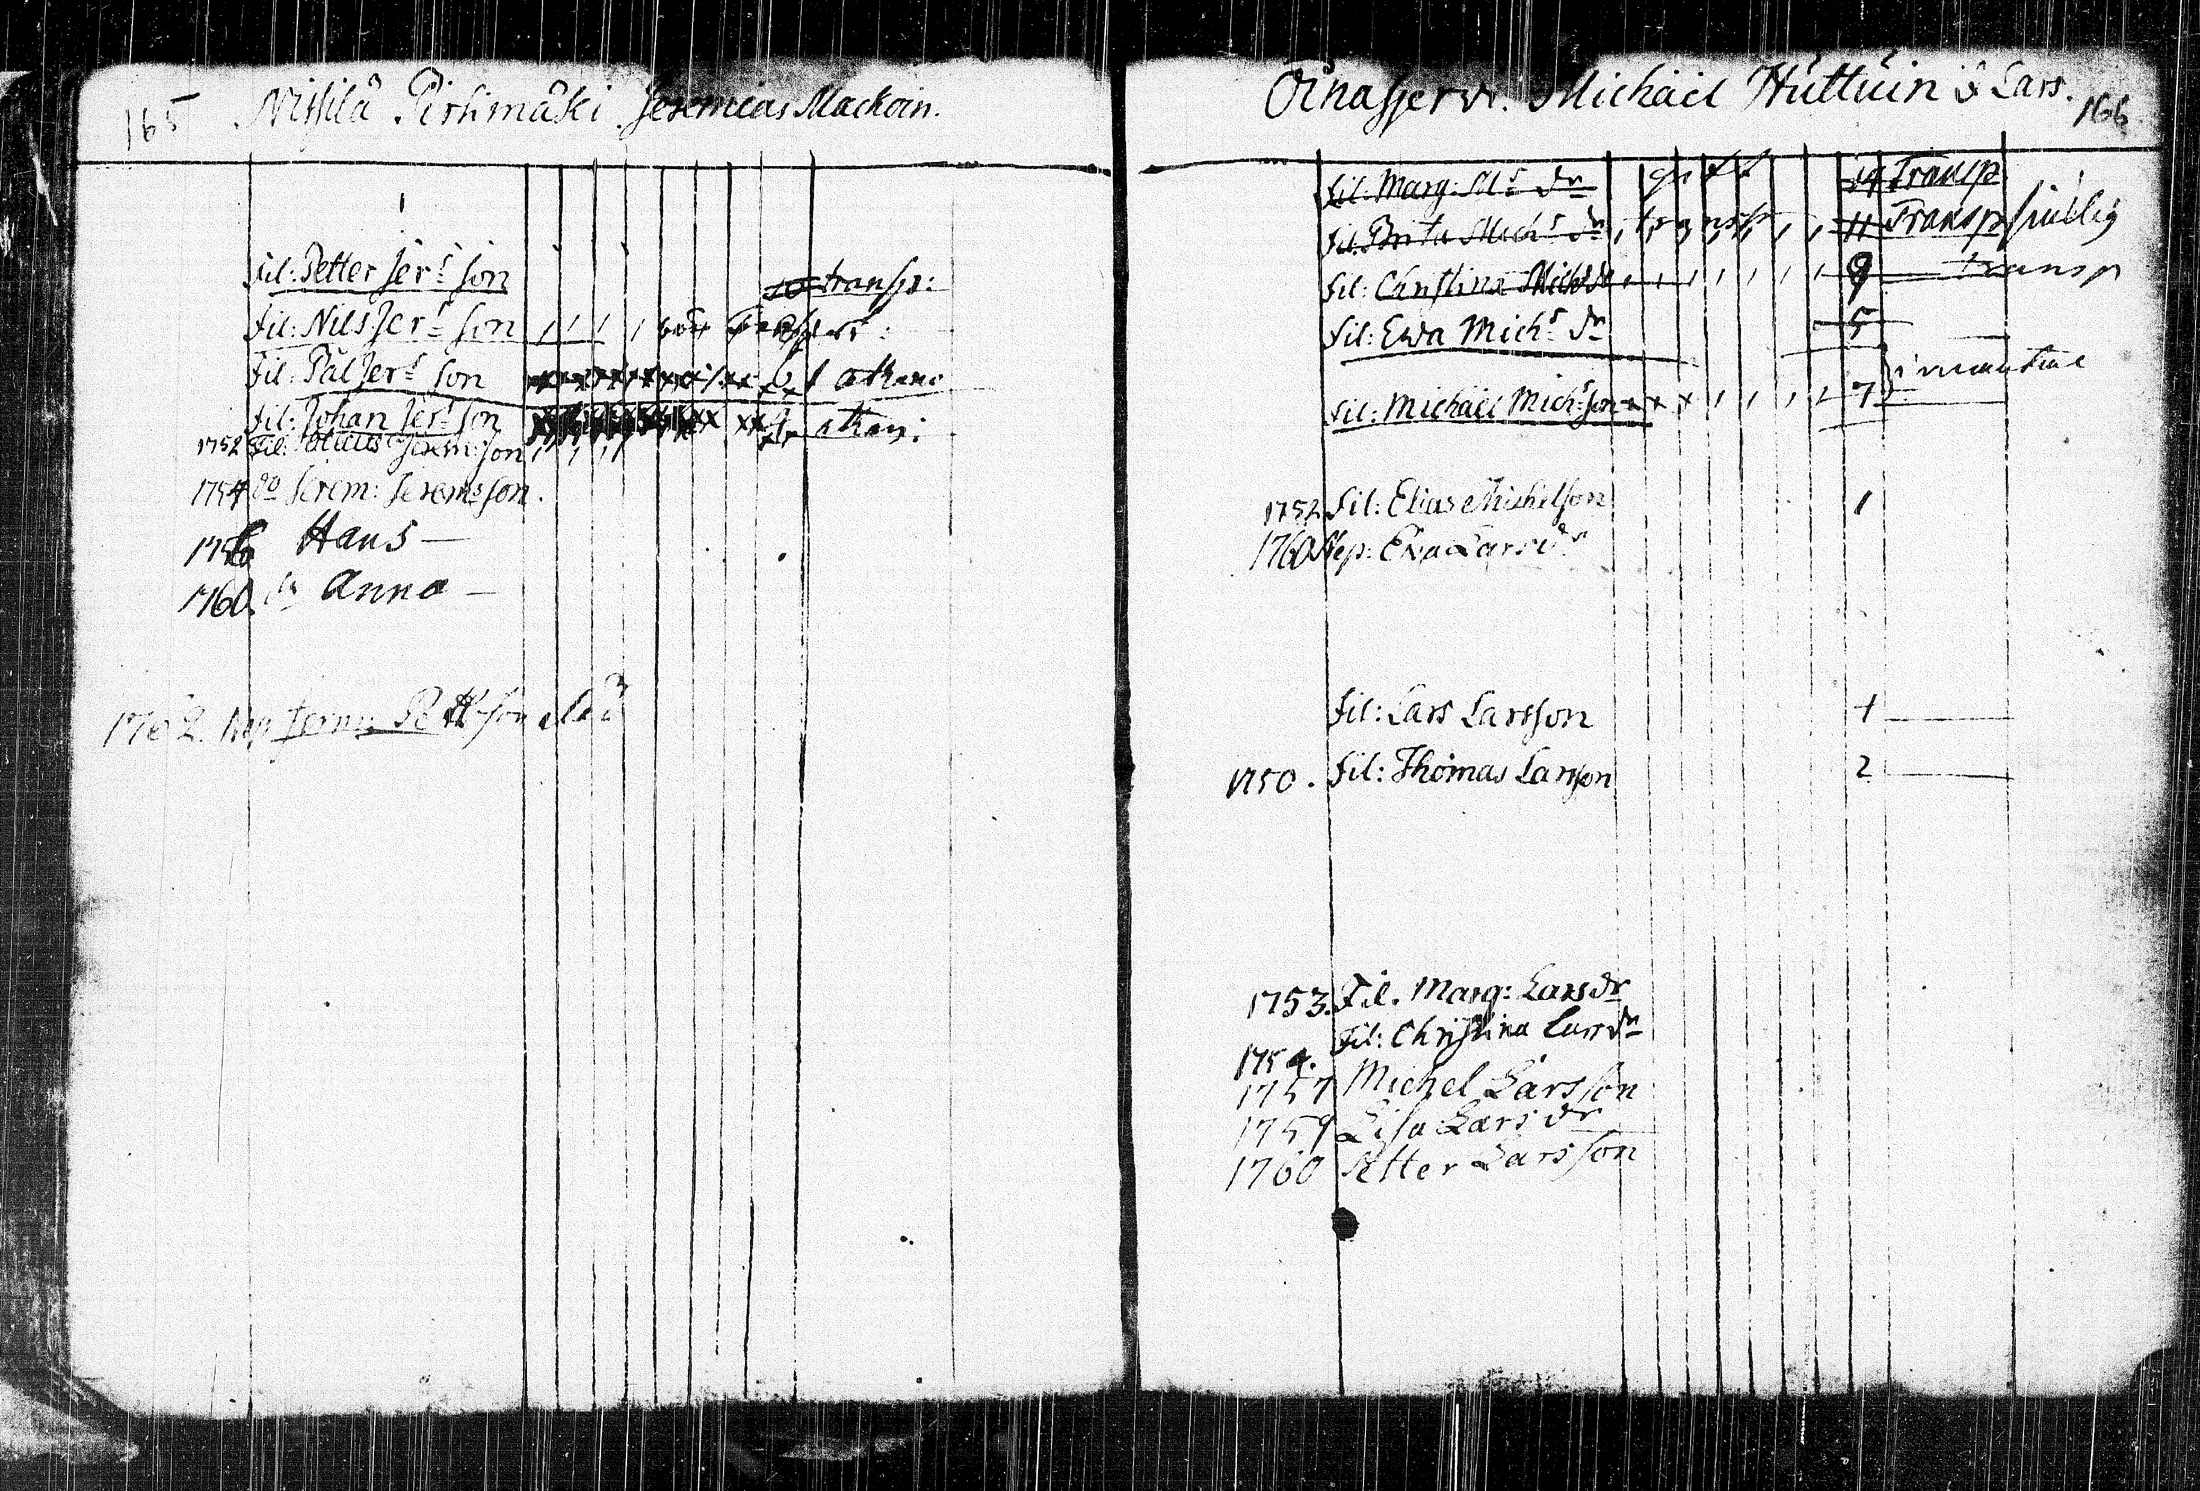 165 Nissilä Pirtimäki. Jeremias Mackoin.
Fil: Petter Jers son 10 transp:
Fil: Nils Jers son
Fil: Pål Jers son
Fil: Johan Jers son
1752 Fil: Jerem: son
1754 do Jerem: Jerems son.
1756 Hans —
1760. dr Anna —
1762. Nep
Oinasjerw. Michäel Huttuin & Lars. 166
Fil: Marg: Ms dr gift 14 Transp
Fil: Brita Michs dr transp 11 Transp
Fil: Christina Michs dr 9 transp
Fil: Ewa Michs dr 5
Fil: Michäel Michs son 7
1752 Fil: Elias Michelson 1
1760 Nep: Ewa Lars dr
Fil: Lars Larsson 4
1750. Fil: Thomas Larsson 2
1753. Fil. Marg: Lars dr
Fil: Christina Lars dr
1754.
1757 Michel Larsson
1759 Lisa Lars dr
1760 Petter Larsson